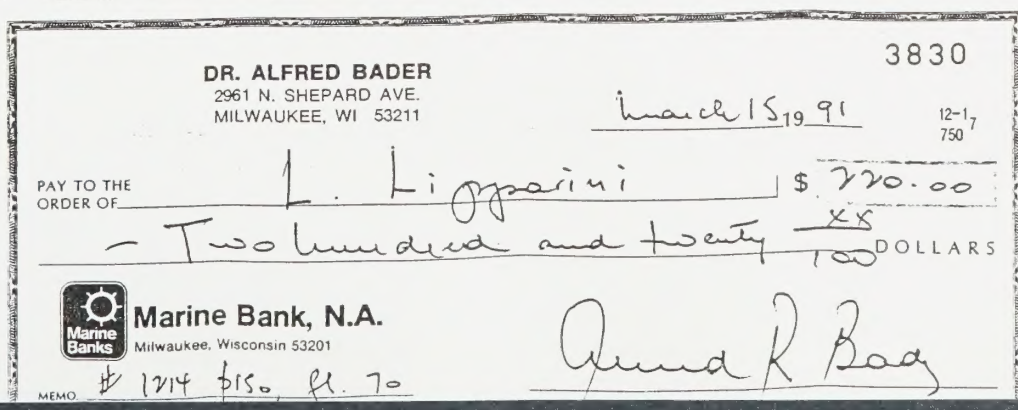 3830
DR. ALFRED BADER
2961 N. SHEPARD AVE.
MILWAUKEE, WI 53211
March 15 19 91
12-1 7
750
PAY TO THE
ORDER OF L. Lipparini $ 220.00
- Two hundred and twenty xx/100 DOLLARS
Marine Banks
Marine Bank, N.A.
Milwaukee, Wisconsin 53201
MEMO # 1214 $150, fl. 70
Alfred R Bader